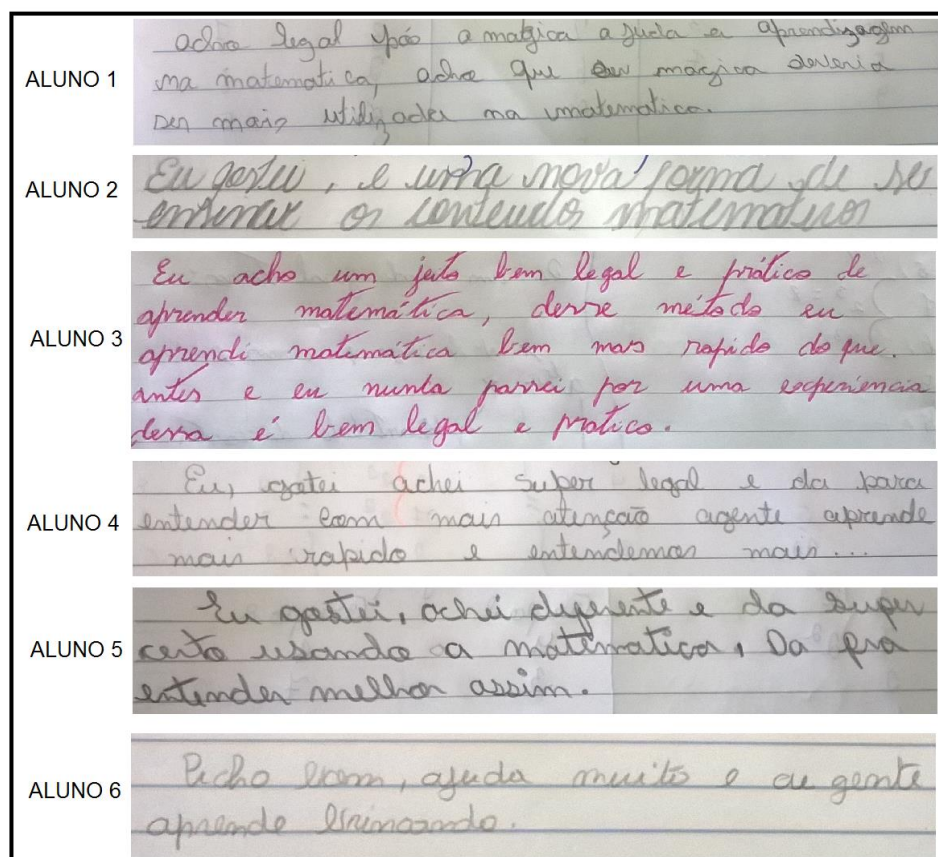 ALUNO 1
acho legal pós a matgica ajuda a aprendizagem
na matematica, acho que a margica deveria
ser mais utilizada na matematica.
ALUNO 2
Eu gostei, e uma nova forma de se
ensinar os conteudos matematicos
ALUNO 3
Eu acho um jeito bem legal e prático de
aprender matemática, desse método eu
aprendi matemática bem mas rapido do que.
antes e eu nunca passei por uma experiencia
dessa é bem legal e pratico.
ALUNO 4
Eu, gotei achei super legal e da para
entender com mais atenção agente aprende
mais rapido e entendemos mais...
ALUNO 5
Eu gostei, achei diferente e da super
certo usando a matematica, Da pra
entender melhor assim.
ALUNO 6
Acho bom, ajuda muito e a gente
aprende brincando.